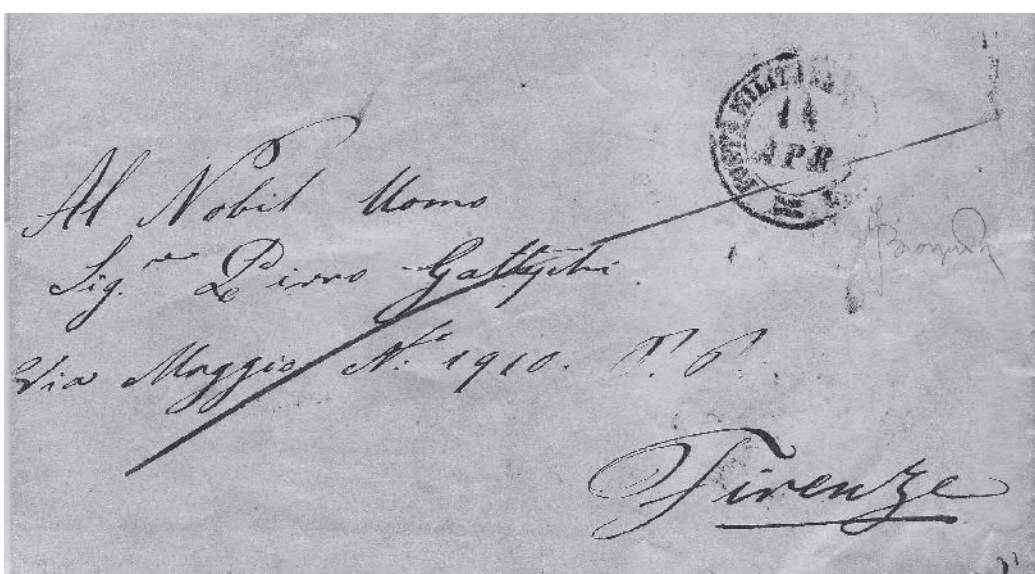 POSTA MILITARE
14
APR
Al Nobil Uomo
Sig.re Pirro
Via Maggio N.° 1910. P. P.
Firenze